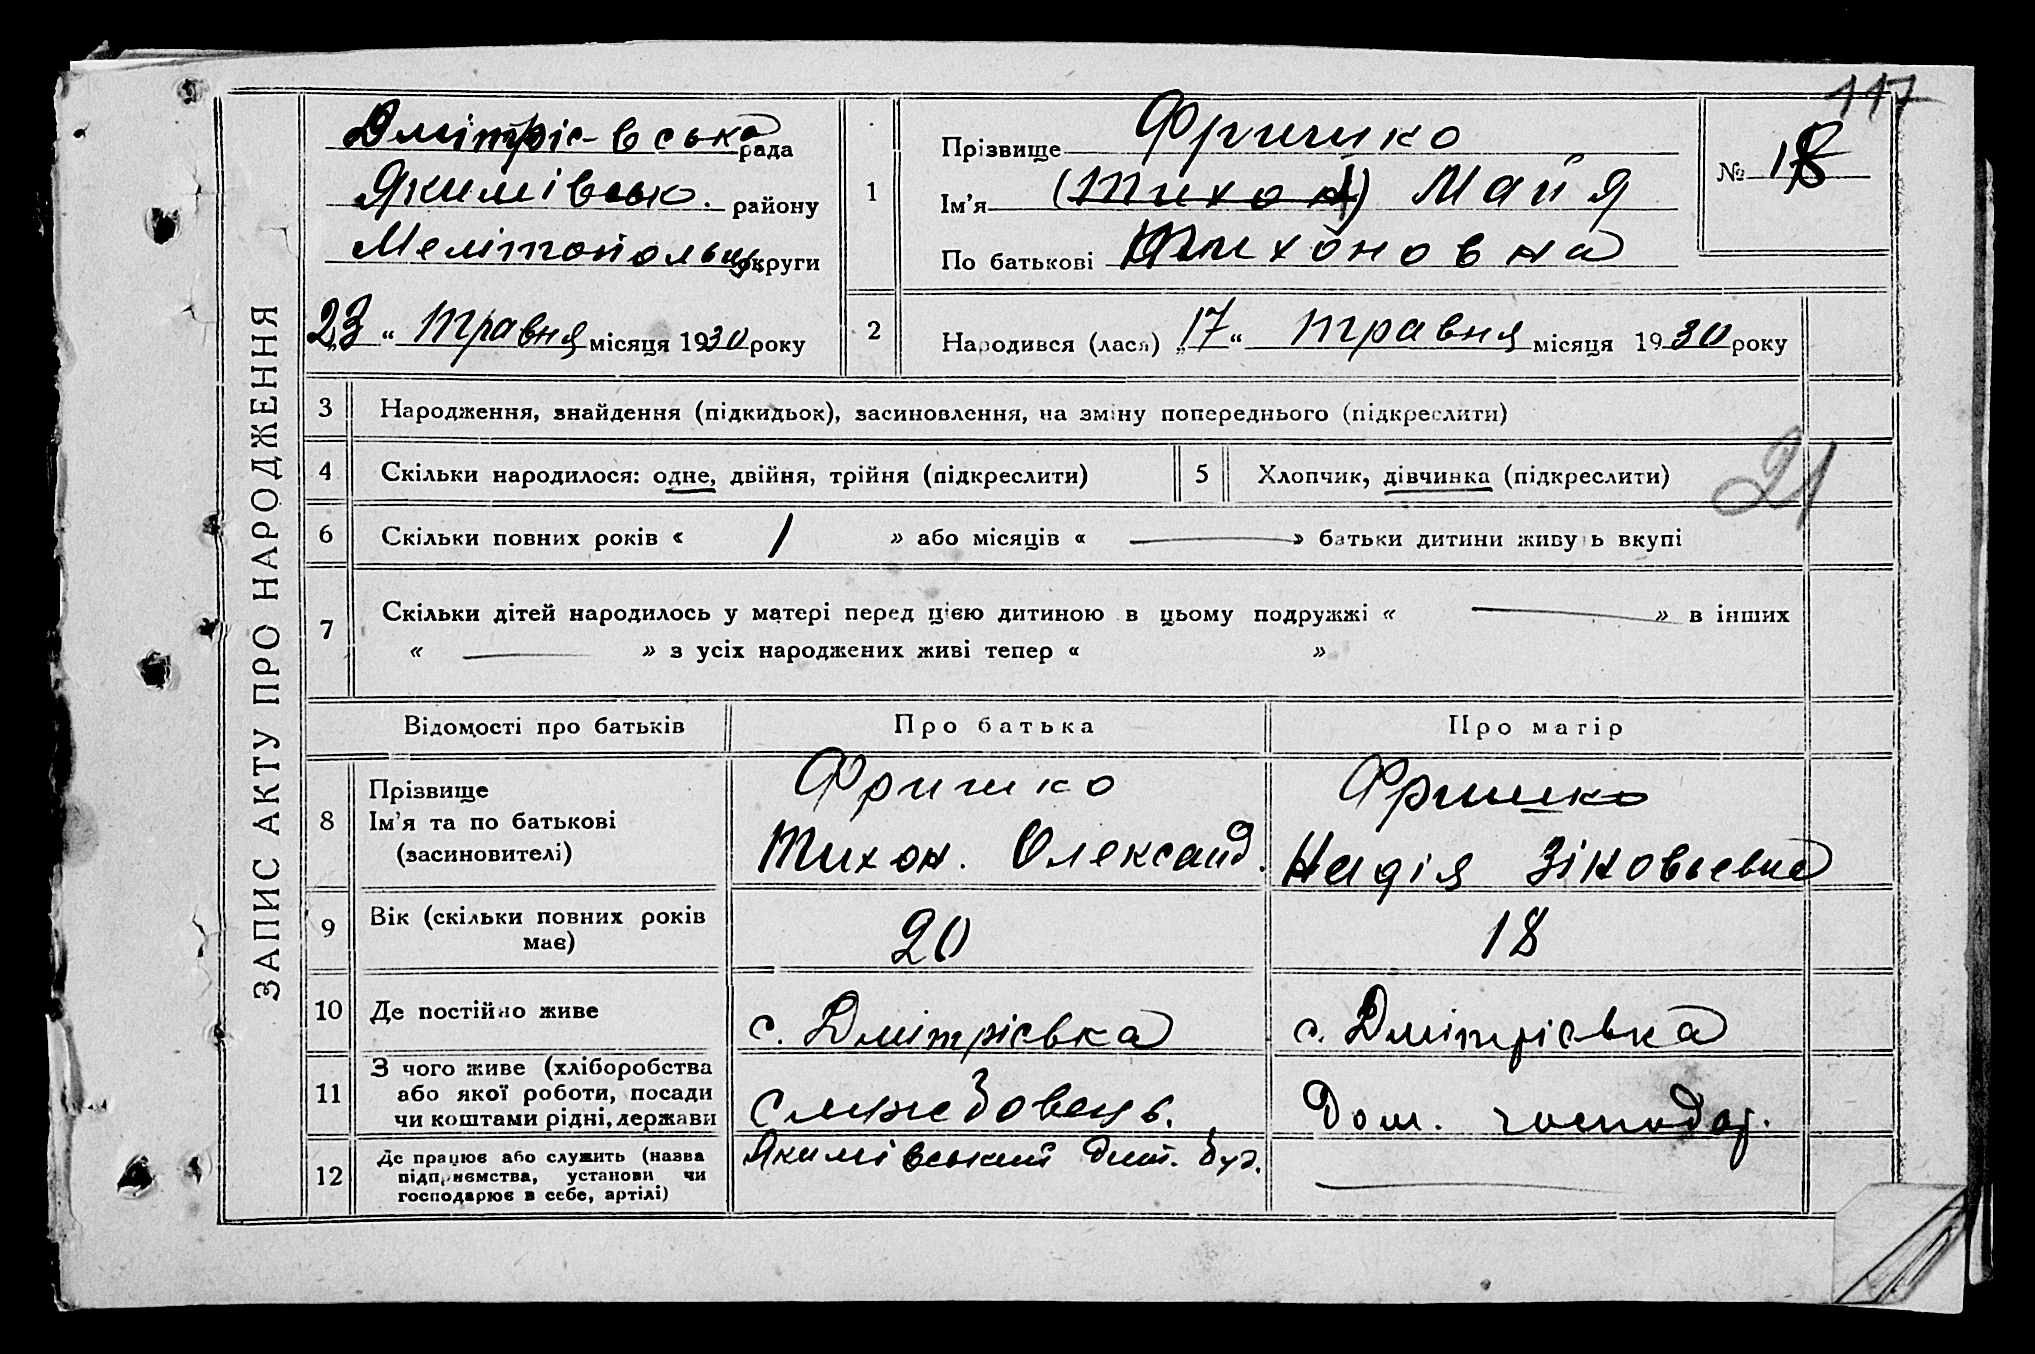 117
ЗАПИС АКТУ ПРО НАРОДЖЕННЯ
Дмітріє-вська рада
Якимівсько. району
Мелітопольщ округи
„23“ травня місяця 1930 року
1 Прізвище Фришко
Ім’я (Тихон) Майя
По батькові Тихоновна
№ 18
2 Народився (лася) „17“ травня місяця 1930 року
3 Народження, знайдення (підкидьок), засиновлення, на зміну попереднього (підкреслити)
4 Скільки народилося: одне, двійня, трійня (підкреслити)
5 Хлопчик, дівчинка (підкреслити)
21
6 Скільки повних років « 1 » або місяців « — » батьки дитини живуть вкупі
7 Скільки дітей народилось у матері перед цією дитиною в цьому подружжі « — » в інших
« — » з усіх народжених живі тепер « »
Відомості про батьків Про батька Про матір
8 Прізвище
Ім’я та по батькові
(засиновителі)
Фришко
Тихон. Олександ.
Фришко
Надія Зіновьевна
9 Вік (скільки повних років
має)
20
18
10 Де постійно живе
с. Дмітрієвка
с. Дмітрієвка
11 З чого живе (хліборобства
або якої роботи, посади
чи коштами рідні, держави
Службовець.
Дом. господар.
12 Де працює або служить (назва
підприємства, установи чи
господарює в себе, артілі)
Якимівський Дит. буд.
—